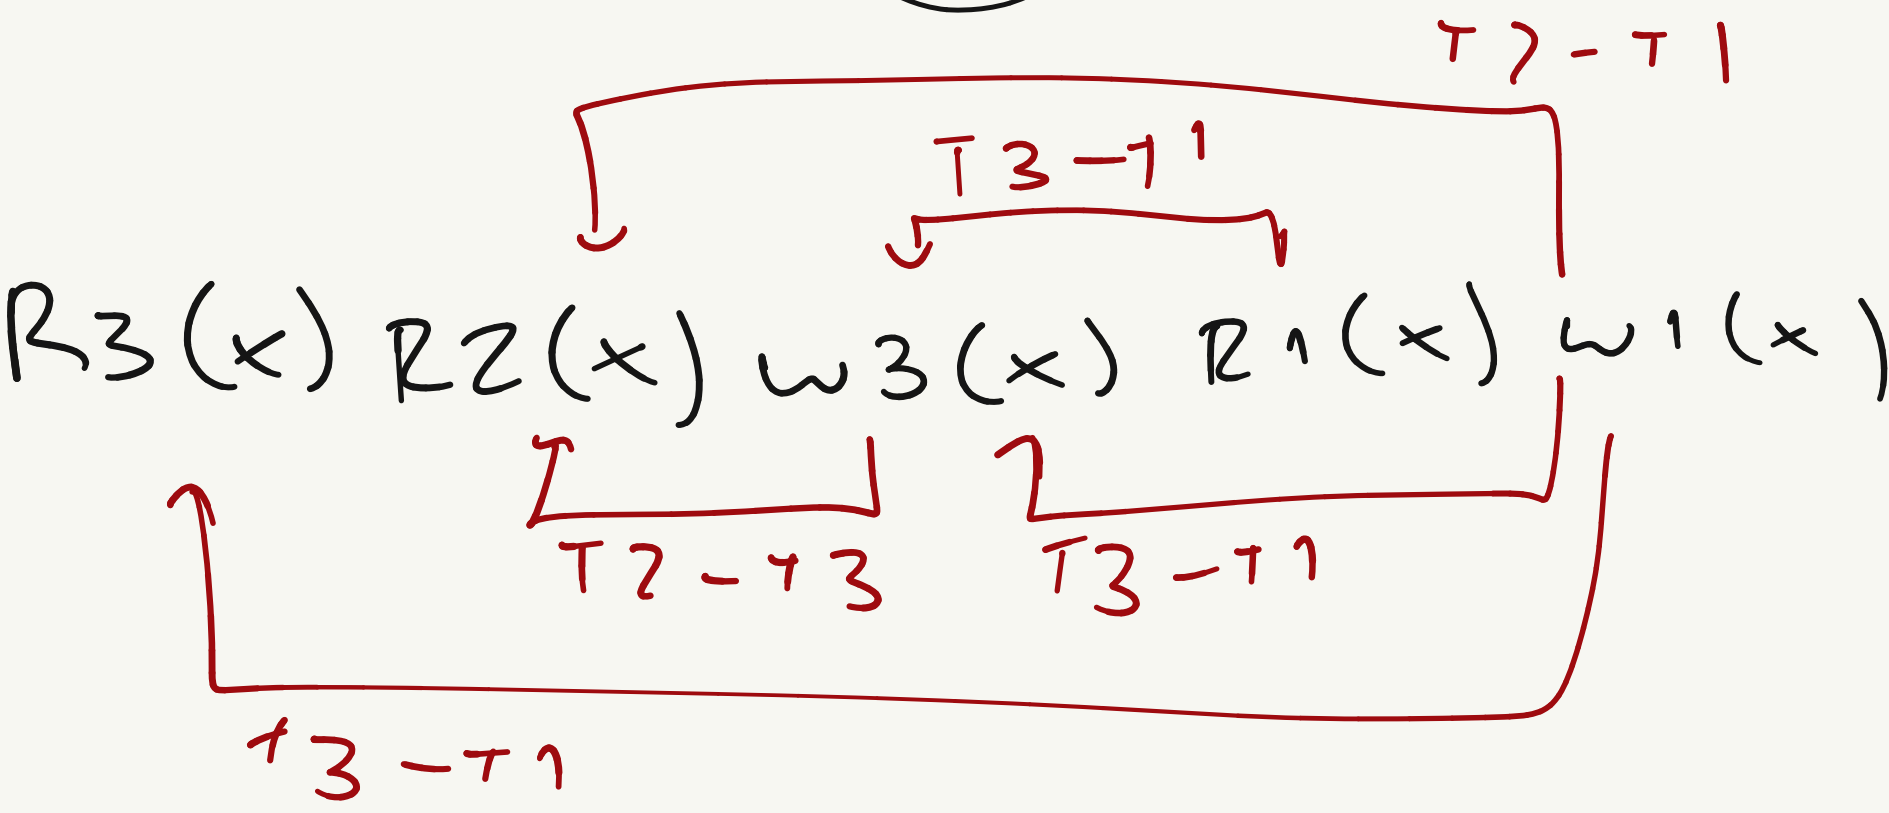 T2-T1
T3-T1
R3(x) R2(x) w3(x) R1(x) w1(x)
T2-T3 T3-T1
T3-T1